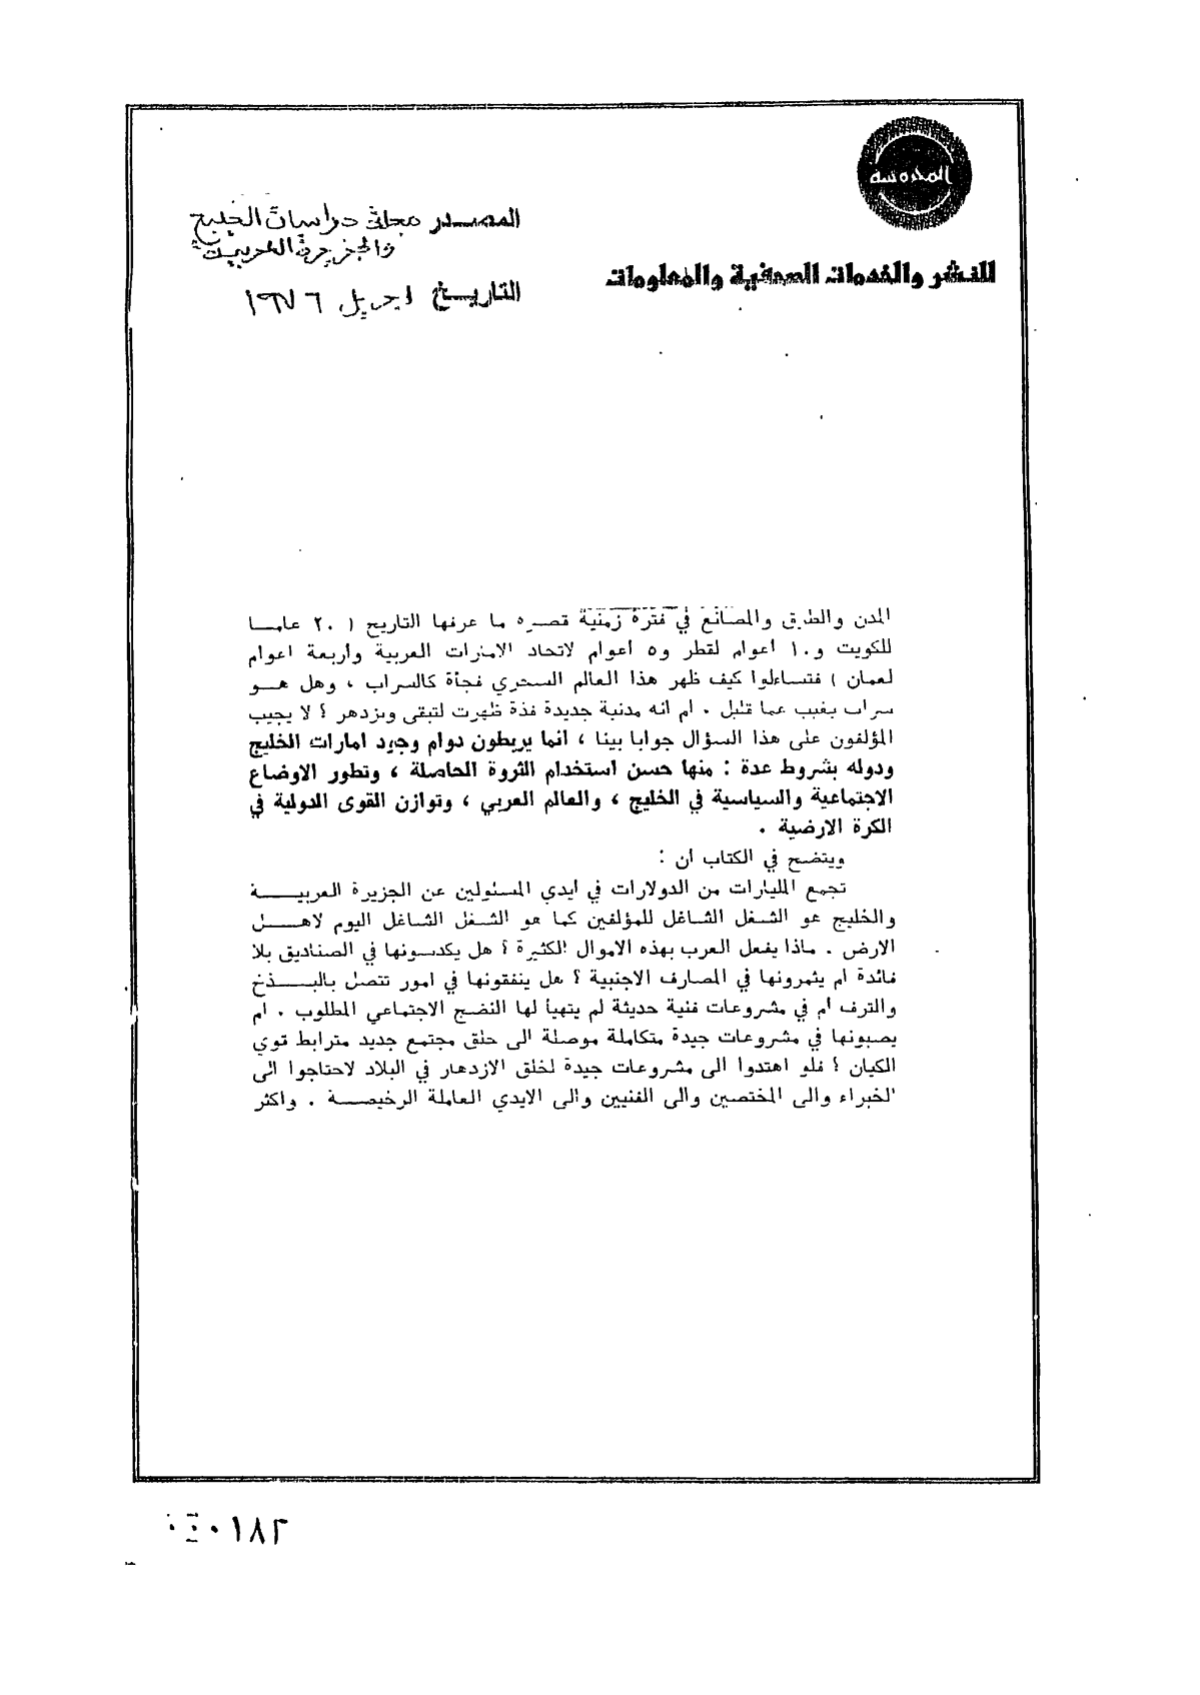 المحروسة
للنشر والخدمات الصحفية والمعلومات
المصدر مجلة دراسات الخليج
والجزيرة العربية
التاريخ ابريل ١٩٧٦
المدن والطرق والمصانع في فترة زمنية قصيره ما عرفها التاريخ ( ٢٠ عامسا
للكويت و١٠ اعوام لقطر و٥ اعوام لاتحاد الامارات العربية واربعة اعوام
لعمان ) فتساءلوا كيف ظهر هذا العالم السحري فجأة كالسراب ، وهل هو
سراب يغيب عما قليل . ام انه مدنية جديدة فذة ظهرت لتبقى وتزدهر ؟ لا يجيب
المؤلفون على هذا السؤال جوابا بينا ، انما يربطون دوام وجود امارات الخليج
ودوله بشروط عدة : منها حسن استخدام الثروة الحاصلة ، وتطور الاوضاع
الاجتماعية والسياسية في الخليج ، والعالم العربي ، وتوازن القوى الدولية في
الكرة الارضية .
ويتضح في الكتاب ان :
تجمع المليارات من الدولارات في ايدي المسئولين عن الجزيرة العربية
والخليج هو الشغل الشاغل للمؤلفين كما هو الشغل الشاغل اليوم لاهل
الارض . ماذا يفعل العرب بهذه الاموال الكثيرة ؟ هل يكدسونها في الصناديق بلا
فائدة ام يثمرونها في المصارف الاجنبية ؟ هل ينفقونها في امور تتصل بالبذخ
والترف ام في مشروعات فنية حديثة لم يتهيأ لها النضج الاجتماعي المطلوب . ام
يصبونها في مشروعات جيدة متكاملة موصلة الى خلق مجتمع جديد مترابط قوي
الكيان ؟ فلو اهتدوا الى مشروعات جيدة لخلق الازدهار في البلاد لاحتاجوا الى
الخبراء والى المختصين والى الفنيين والى الايدي العاملة الرخيصة . واكثر
٠١٨٢